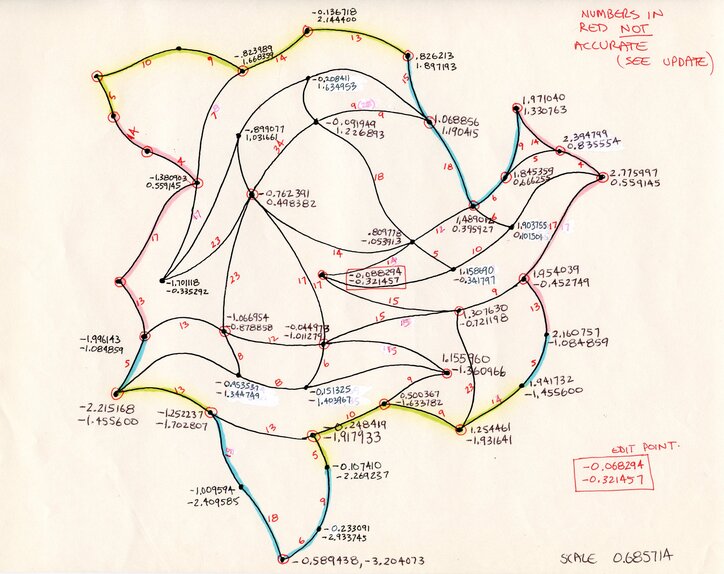 NUMBERS IN
RED NOT
ACCURATE
(SEE UPDATE)
-0.136718
2.144400
13
10
9
14
-.823989
1.668359
.826213
1.897193
15
5
7
-0.208411
1.634953
9
9
1.068856
1.190415
1.971040
1.330763
-0.091949
1.226893
-.899077
1.031661
2.394799
0.835554
14
9
5
4
4
24
18
18
-1.380903
0.559145
-0.762391
0.498382
1.845359
0.666255
2.775997
0.559145
6
1.489012
0.395927
6
1.903755
0.101501
17
17
23
.809778
-.053913
12
14
5
10
17
-1.701118
-0.335292
23
17
-0.088294
-0.321457
1.158690
-0.341797
1.954039
-0.452749
9
13
15
13
-1.066954
-0.878858
-0.044973
-1.011279
15
1.307630
-0.721198
13
-1.996143
-1.084859
13
12
2.160757
-1.084859
5
8
15
1.155960
-1.360966
5
-0.953537
-1.344749
8
6
-0.151325
-1.403967
9
23
1.941732
-1.455600
-2.215168
-1.455600
13
-1.252237
-1.702807
0.500367
-1.633782
10
9
14
13
-0.248419
-1.917933
1.254461
-1.931641
5
-0.107410
-2.269237
EDIT POINT.
-0.068294
-0.321457
-1.009594
-2.409585
9
18
-0.233091
-2.933745
6
-0.589438, -3.204073
SCALE 0.685714